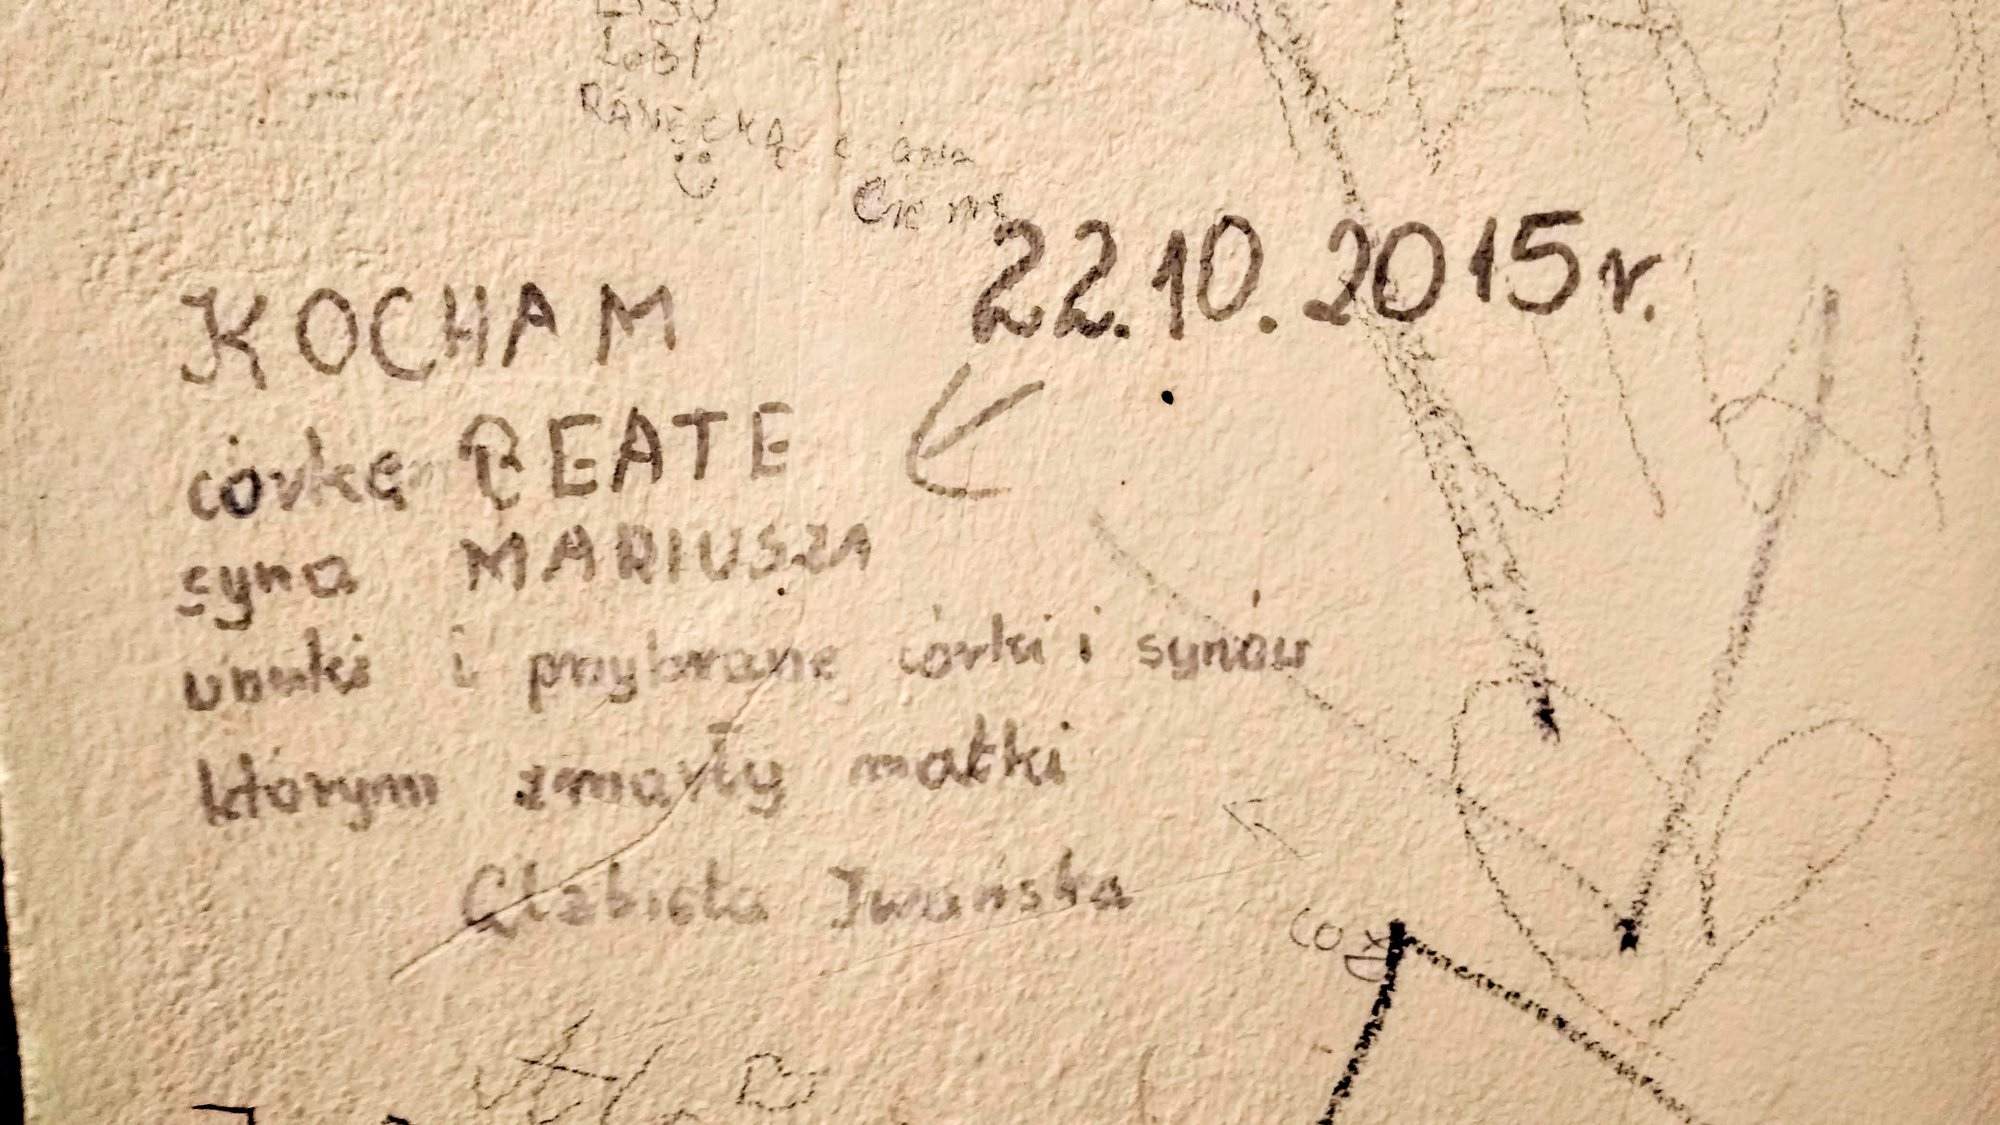 RANECKĄ
Cię
22.10.2015r.
KOCHAM
córkę BEATE
syna MARIUSZA
wnuki i przybrane córki i synów
którym zmarły matki
Elżbieta Iwańska
CO
XD